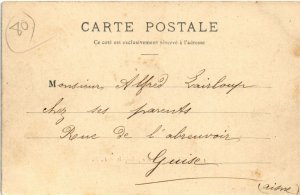 80
CARTE POSTALE
Ce côté est exclusivement réservé à l'adresse
Monsieur Alfred Lairloup
chez ses parents
Rue de l'abreuvoir
Guise
(aisne)